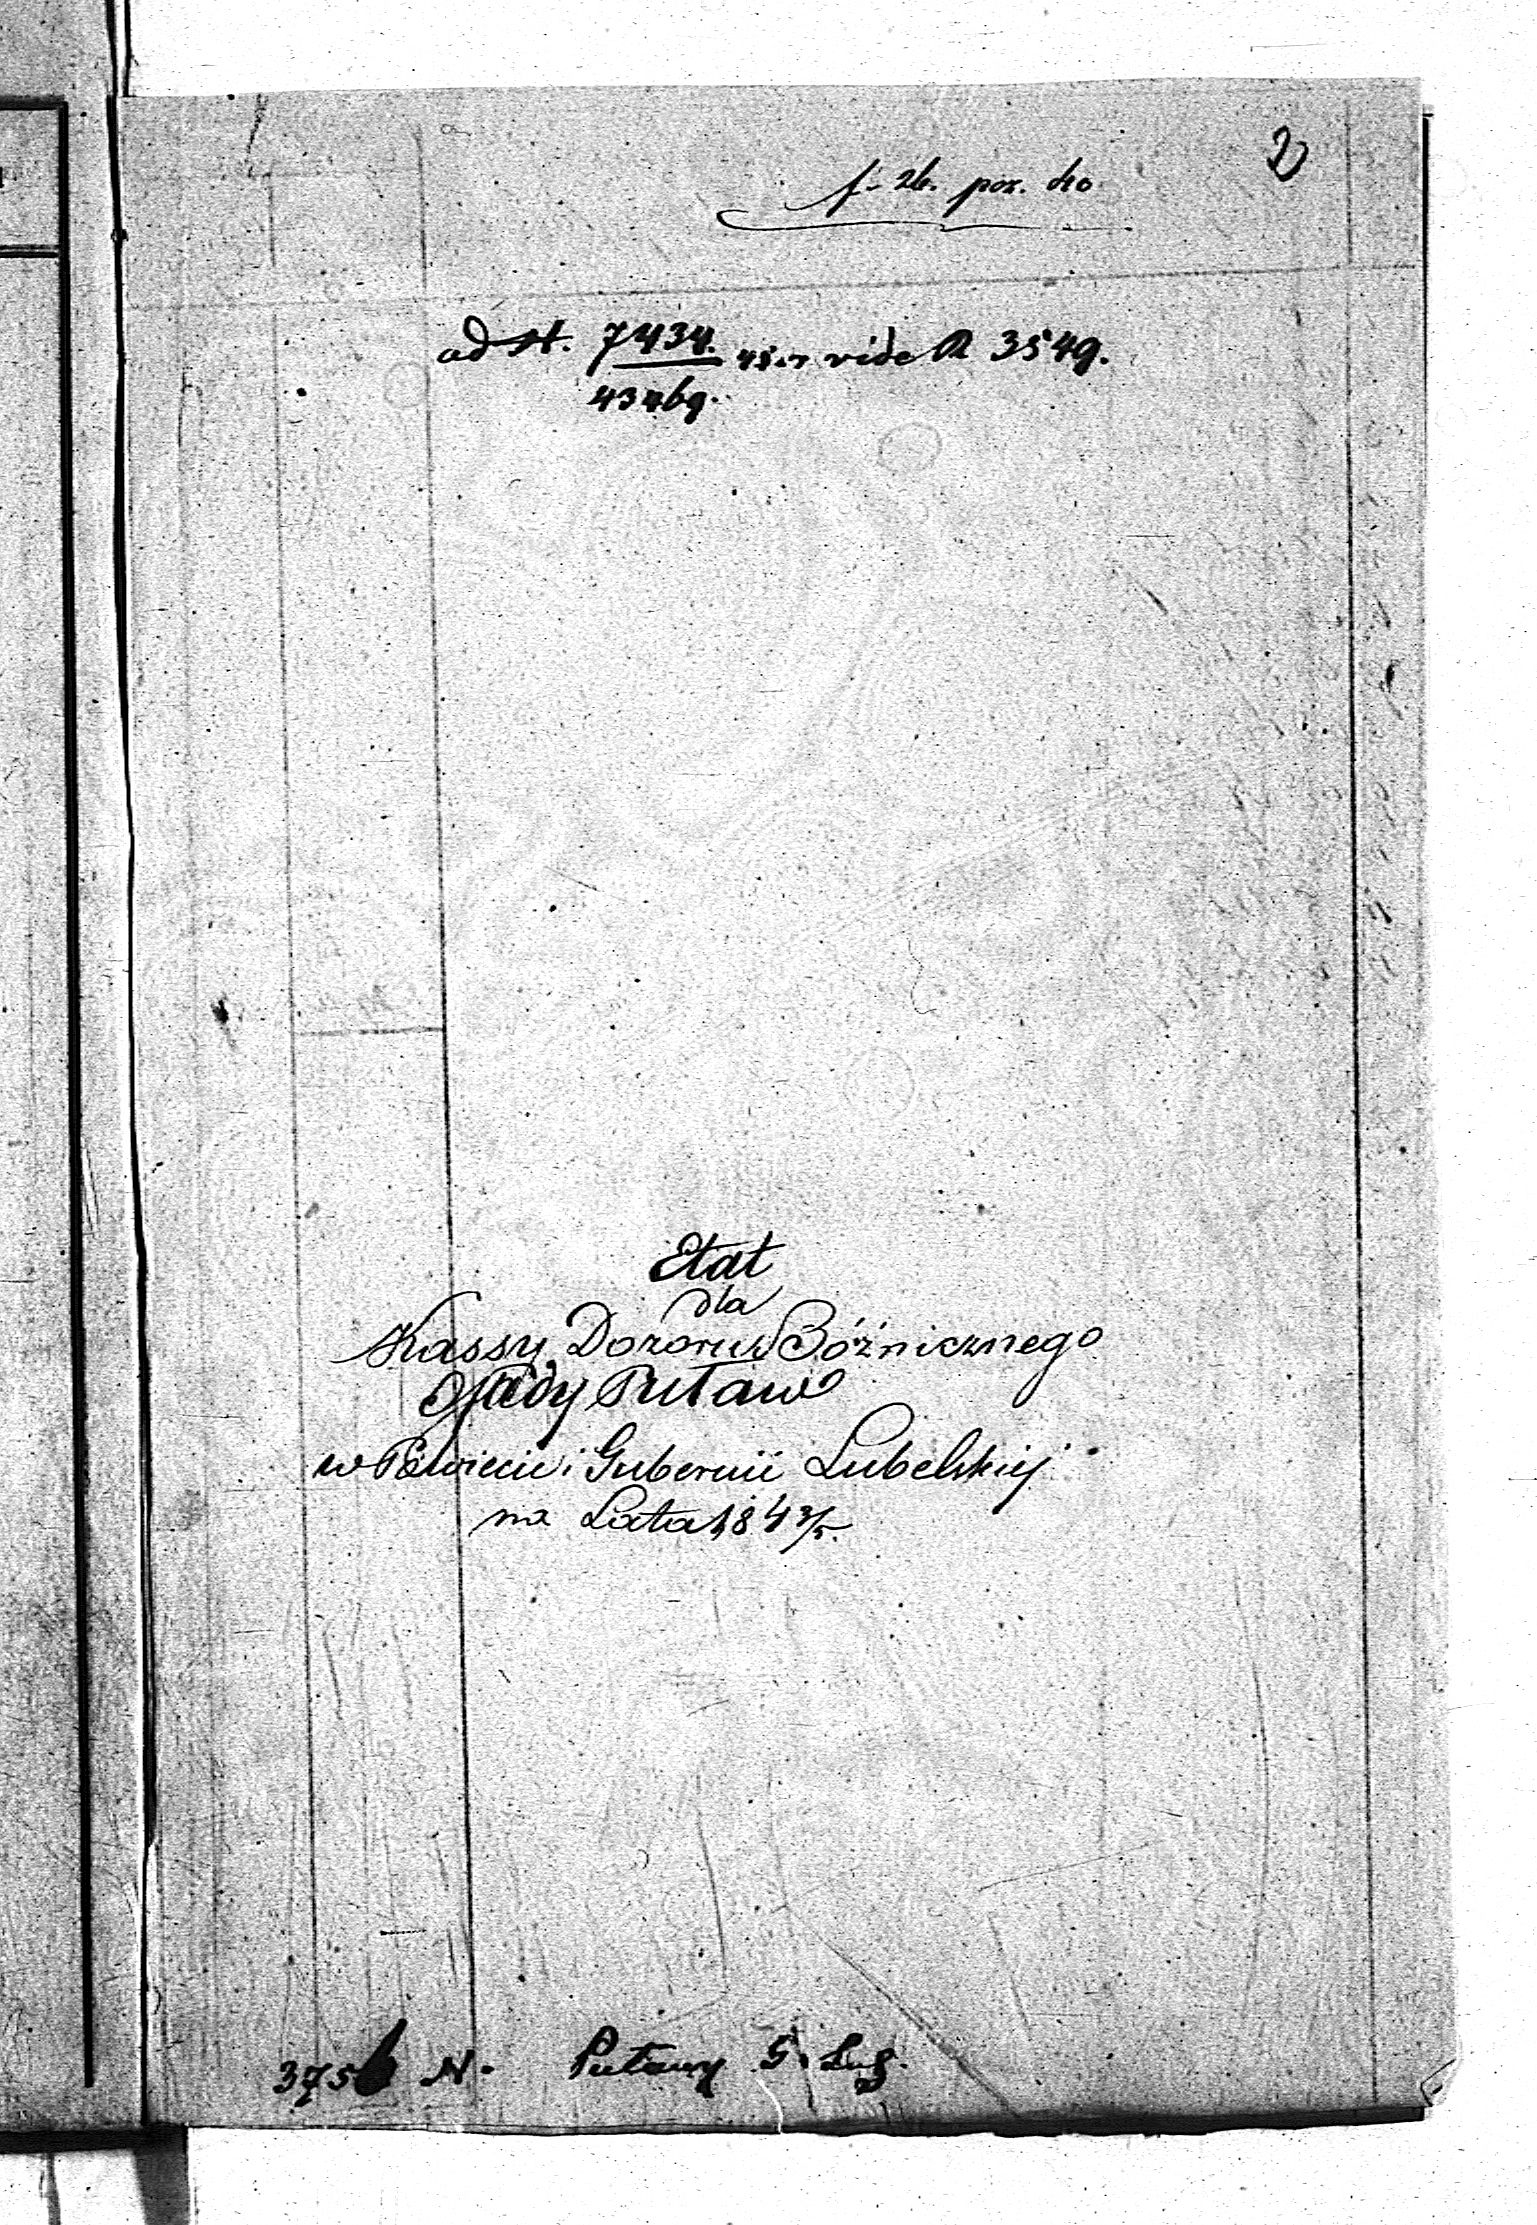 2
f. 26. poz. 40
ad N. 7434. vide R 3549.
43469.
Etat
dla
Kassy Dozoru Bóźnicznego
Osady Puław
w Powiecie i Gubernii Lubelskiej
na Lata 184 3/5.
375 N. Puławy G. Lub.